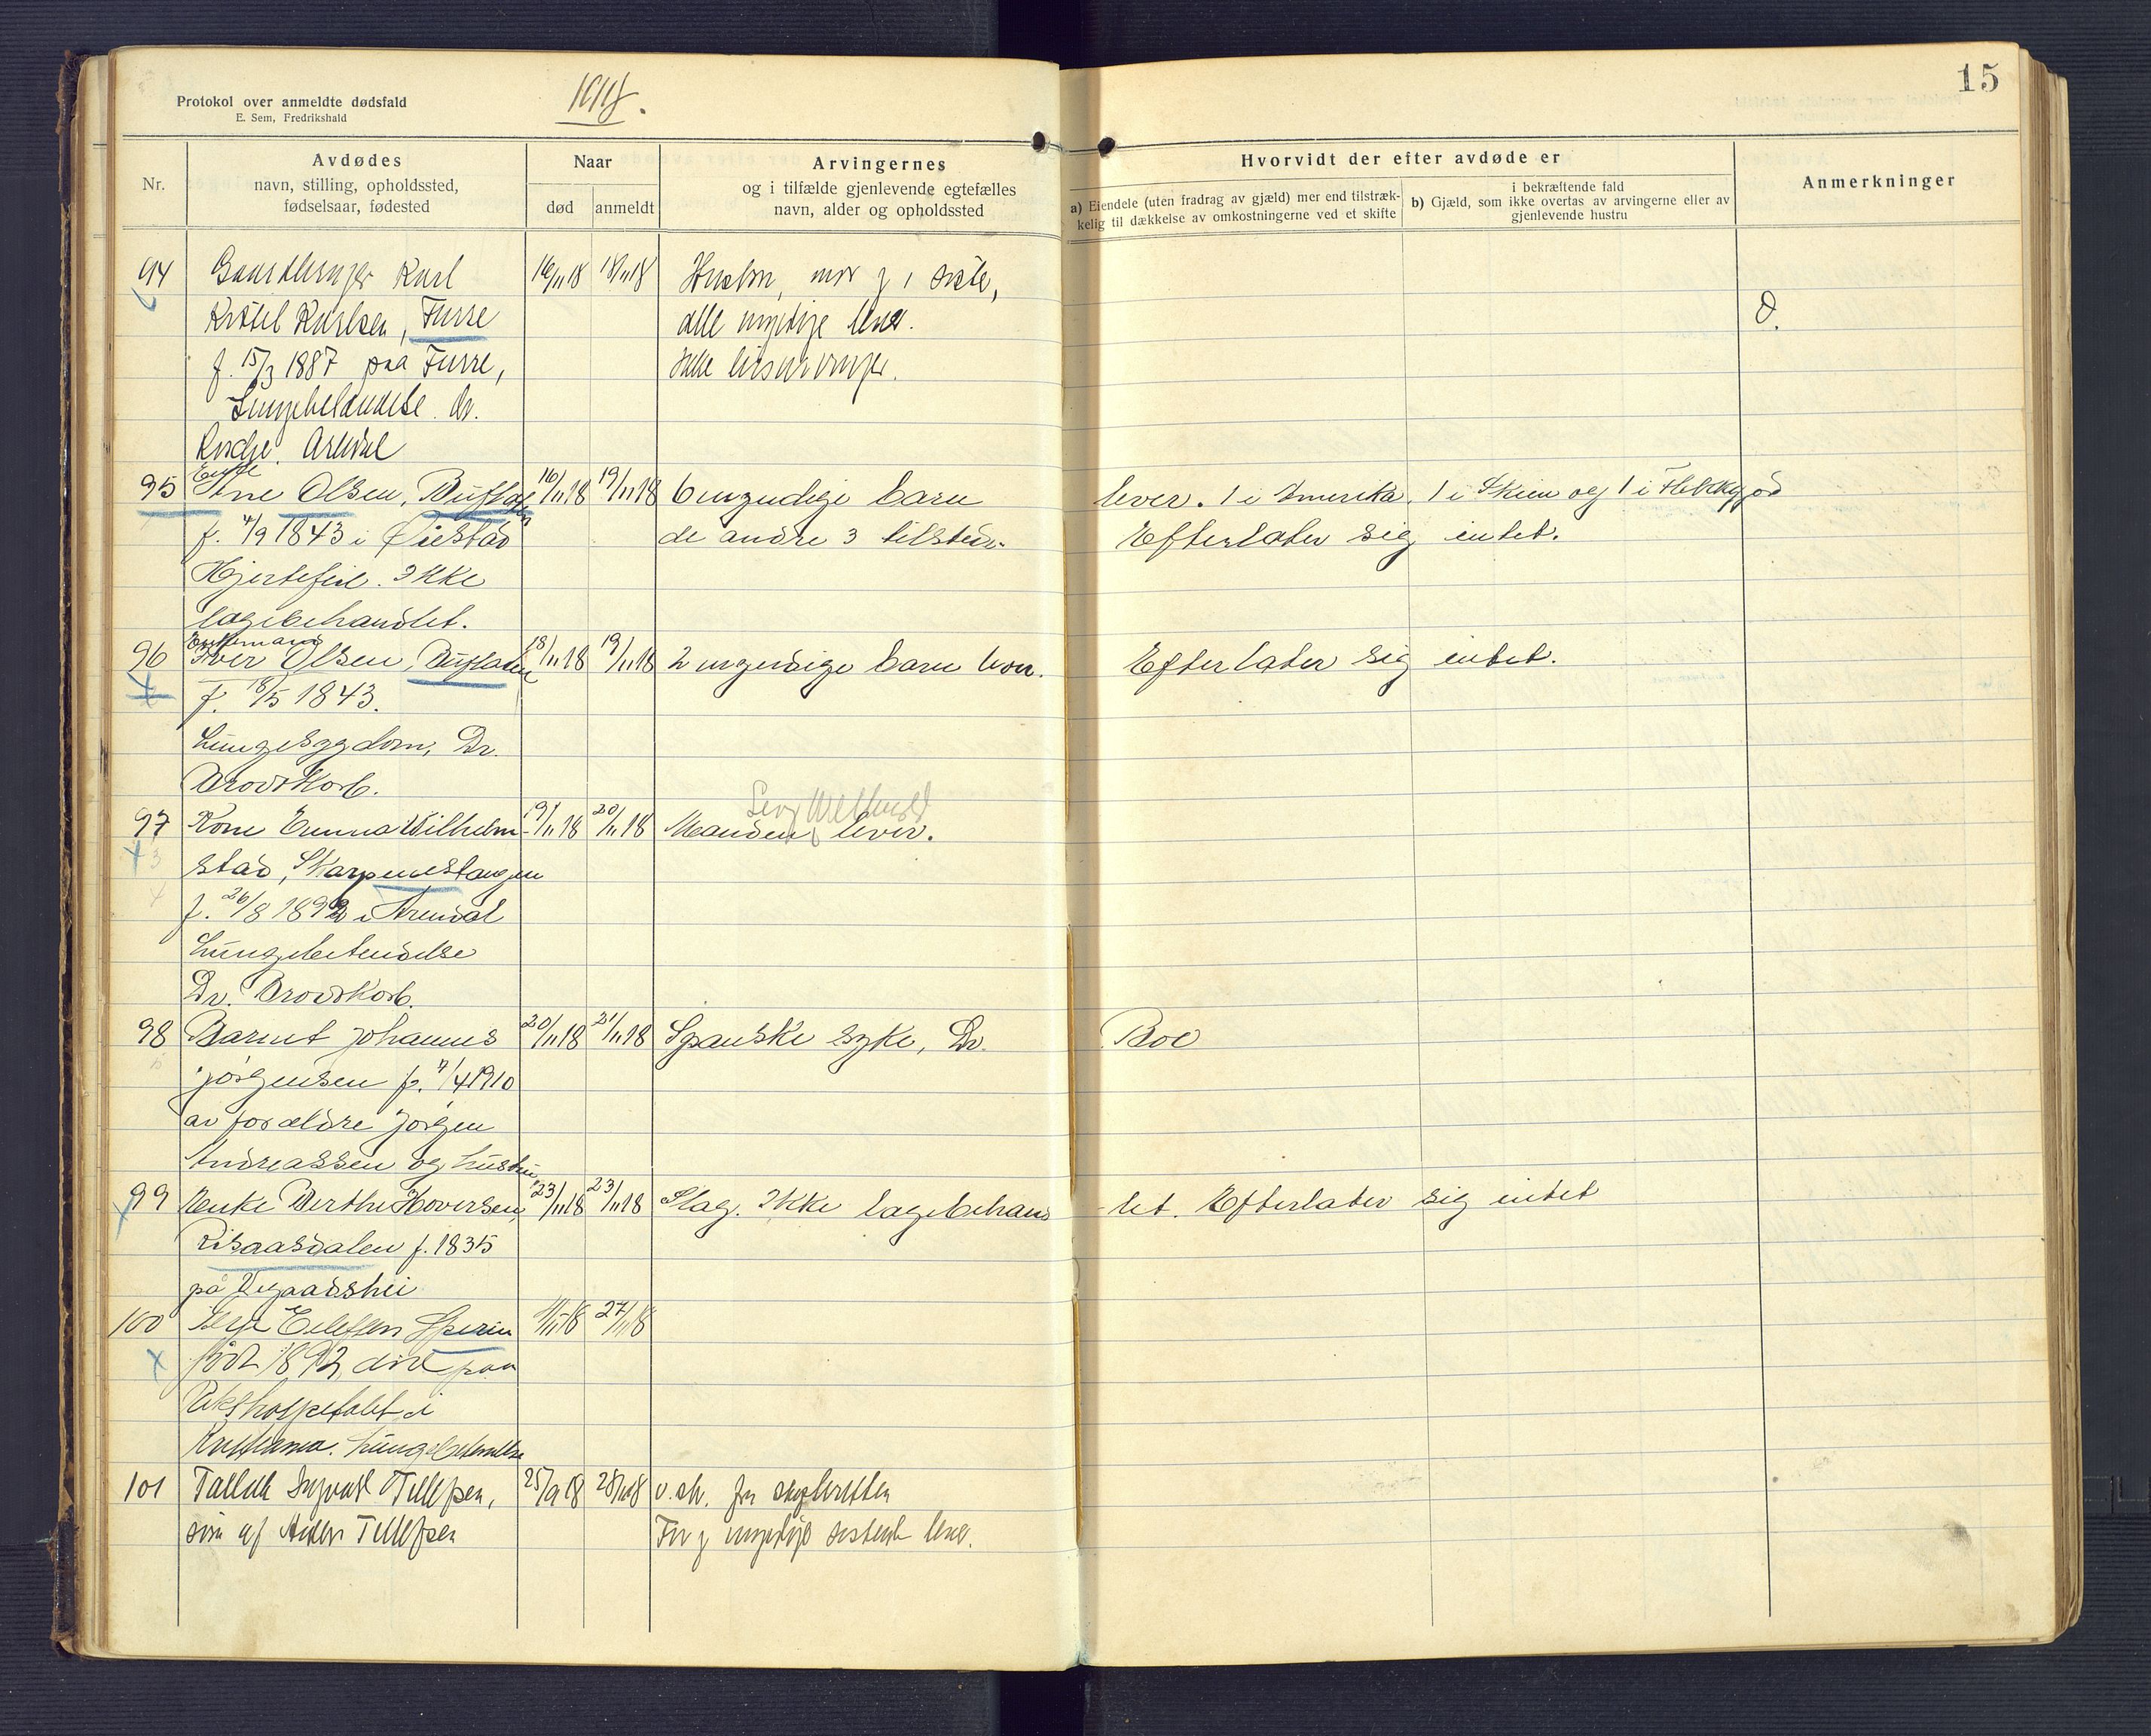 Protokol over anmeldte dødsfald
E. Sem, Fredrikshald
1918.
15
Nr.
Avdødes
navn, stilling, opholdssted,
fødselsaar, fødested
Naar
død
anmeldt
Arvingernes
og i tilfælde gjenlevende egtefælles
navn, alder og opholdssted
Hvorvidt der efter avdøde er
a) Eiendele (uten fradrag av gjæld) mer end tilstræk-
kelig til dækkelse av omkostningerne ved et skifte
i bekræftende fald
b) Gjæld, som ikke overtas av arvingerne eller av
gjenlevende hustru
Anmerkninger
94 Karl 16/11 18 18/11 18 mor
Karlsen, Furre alle myndige lever. O.
f. 15/3 1887 paa Furre, ikke livsarvinger.
Lungebetændelse. Dr.
Arendal
Enke
95 Olsen, 16/11 18 19/11 18 6 myndige barn lever. 1 i Amerika, 1 i Skien og 1 i Flekkerød
f. 4/9 1843 i Øiestad de andre 3 tilstede. Efterlater sig intet.
Hjertefeil. Ikke
lægebehandlet.
Enkemand
96 Iver Olsen, 18/11 18 19/11 18 2 myndige barn lever. Efterlater sig intet.
f. 18/5 1843.
Lungesygdom, Dr.
Brodtkorb.
97 Kone Emma Vilhelm- 19/11 18 20/11 18 Manden lever.
stad, Skarpnestangen
f. 26/8 1892 i Arendal
Lungebetendelse
Dr. Brodtkorb.
98 Barnet Johannes 20/11 18 21/11 18 Spanske syke, Dr. Boe
Jørgensen f. 7/4 1910
av forældre Jørgen
Andreassen og hustru
99 Enke Berthe Hoversen, 23/11 18 23/11 18 Slag. Ikke lagebehand-let. Efterlater sig intet
Risaasdalen f. 1835
på Vegaardshei
100 Terje Eilefsen 11/11 18 27/11 18
født 1892, død paa
Rikshospitalet i
Kristiania. Lungebetendelse
101 Tallak Ingvald Tellefsen, 25/9 18 28/11 18 fra skifteretten
søn af Tellefsen Far